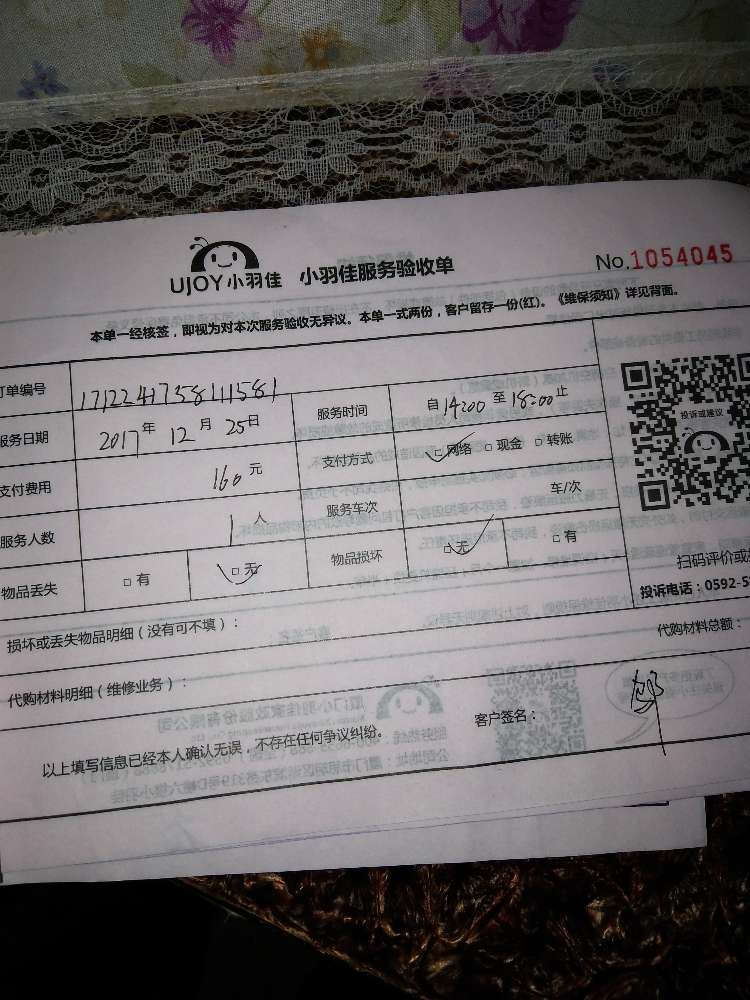 UJOY小羽佳 小羽佳服务验收单 No.1054045
本单一经核签，即视为对本次服务验收无异议。本单一式两份，客户留存一份(红)。《维保须知》详见背面。
订单编号 17122417358111581
服务日期 2017年12月25日 服务时间 自14:00至18:00止
支付费用 160元 支付方式 □网络 □现金 □转账
服务人数 1人 服务车次 车/次
物品丢失 □有 □无 物品损坏 □无 □有
投诉或建议
扫码评价或
投诉电话：0592-5
损坏或丢失物品明细（没有可不填）：
代购材料明细（维修业务）： 代购材料总额：
以上填写信息已经本人确认无误，不存在任何争议纠纷。 客户签名：